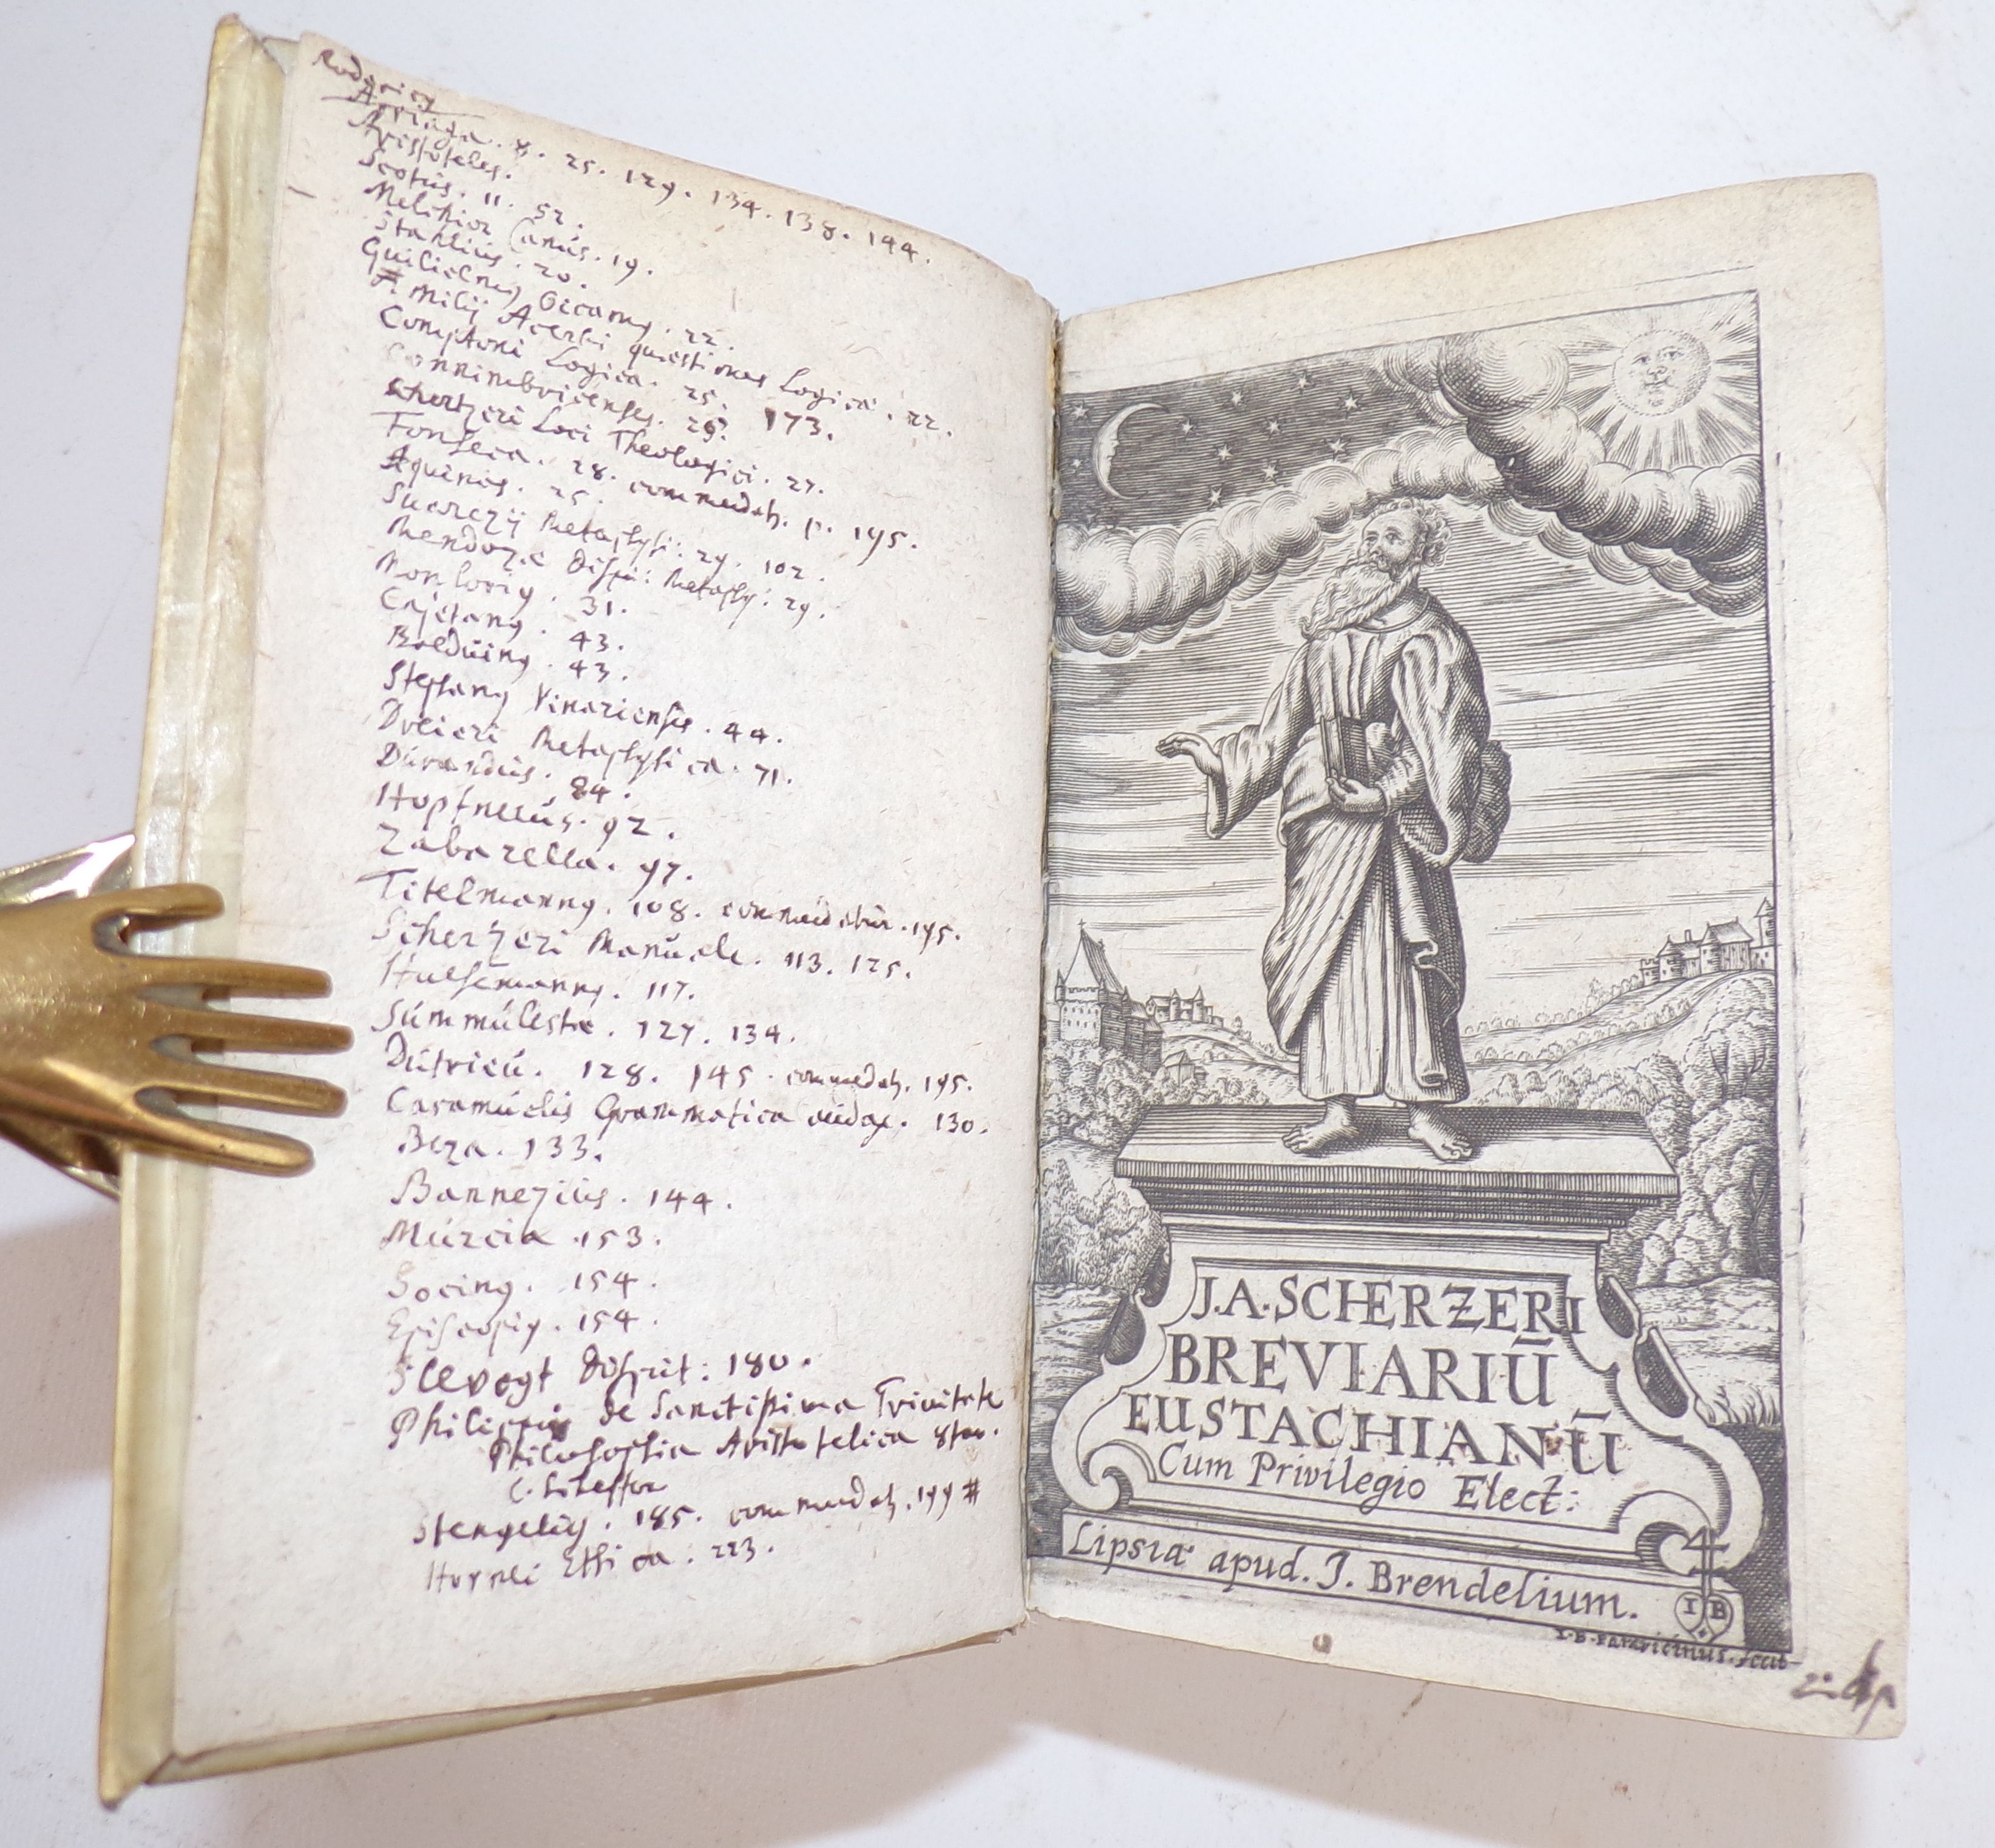 Arriaga. 8. 25. 129. 134. 138. 144.
Aristoteles.
Scotus. 11. 52.
Melchior Canus. 19.
Stahlius. 20.
Guilielmus Occamus. 22.
Acerbi quæstiones Logicæ. 22.
Comptoni Logica. 25. 173.
Connimbricenses.
Schertzeri Loci Theologici. 27.
Fonseca. 28. commendat. p. 195.
Aquinas. 25.
Suarezij Metaphysi: 29. 102.
Mendozæ Dispu: Metaphy: 29.
Monlorius. 31.
Cajetanus. 43.
Balduinus. 43.
Stephanus Vinariensis. 44.
Metaphysica. 71.
Durandus. 84.
92.
Zabarella. 97.
Titelmannus. 108. commendatur. 195.
Scherzeri Manuale. 113. 125.
Hulsemannus. 117.
Summulistæ. 127. 134.
128. 145. commendat. 195.
Caramuelis Grammatica audax. 130.
Beza. 133.
Bannezius. 144.
Murcia. 153.
Socinus. 154.
Episcopius. 154.
Slevogt Disput: 180.
de Sanctissima Trinitate
Philosophia Aristotelica
Stengelius. 185. commendat. 199 #
Hornei Ethica. 223.
J.A. SCHERZERI
BREVIARIŪ
EUSTACHIANŪ
Cum Privilegio Elect:
Lipsiæ apud. J. Brendelium.
I B
I. B. Paravicinus. fecit